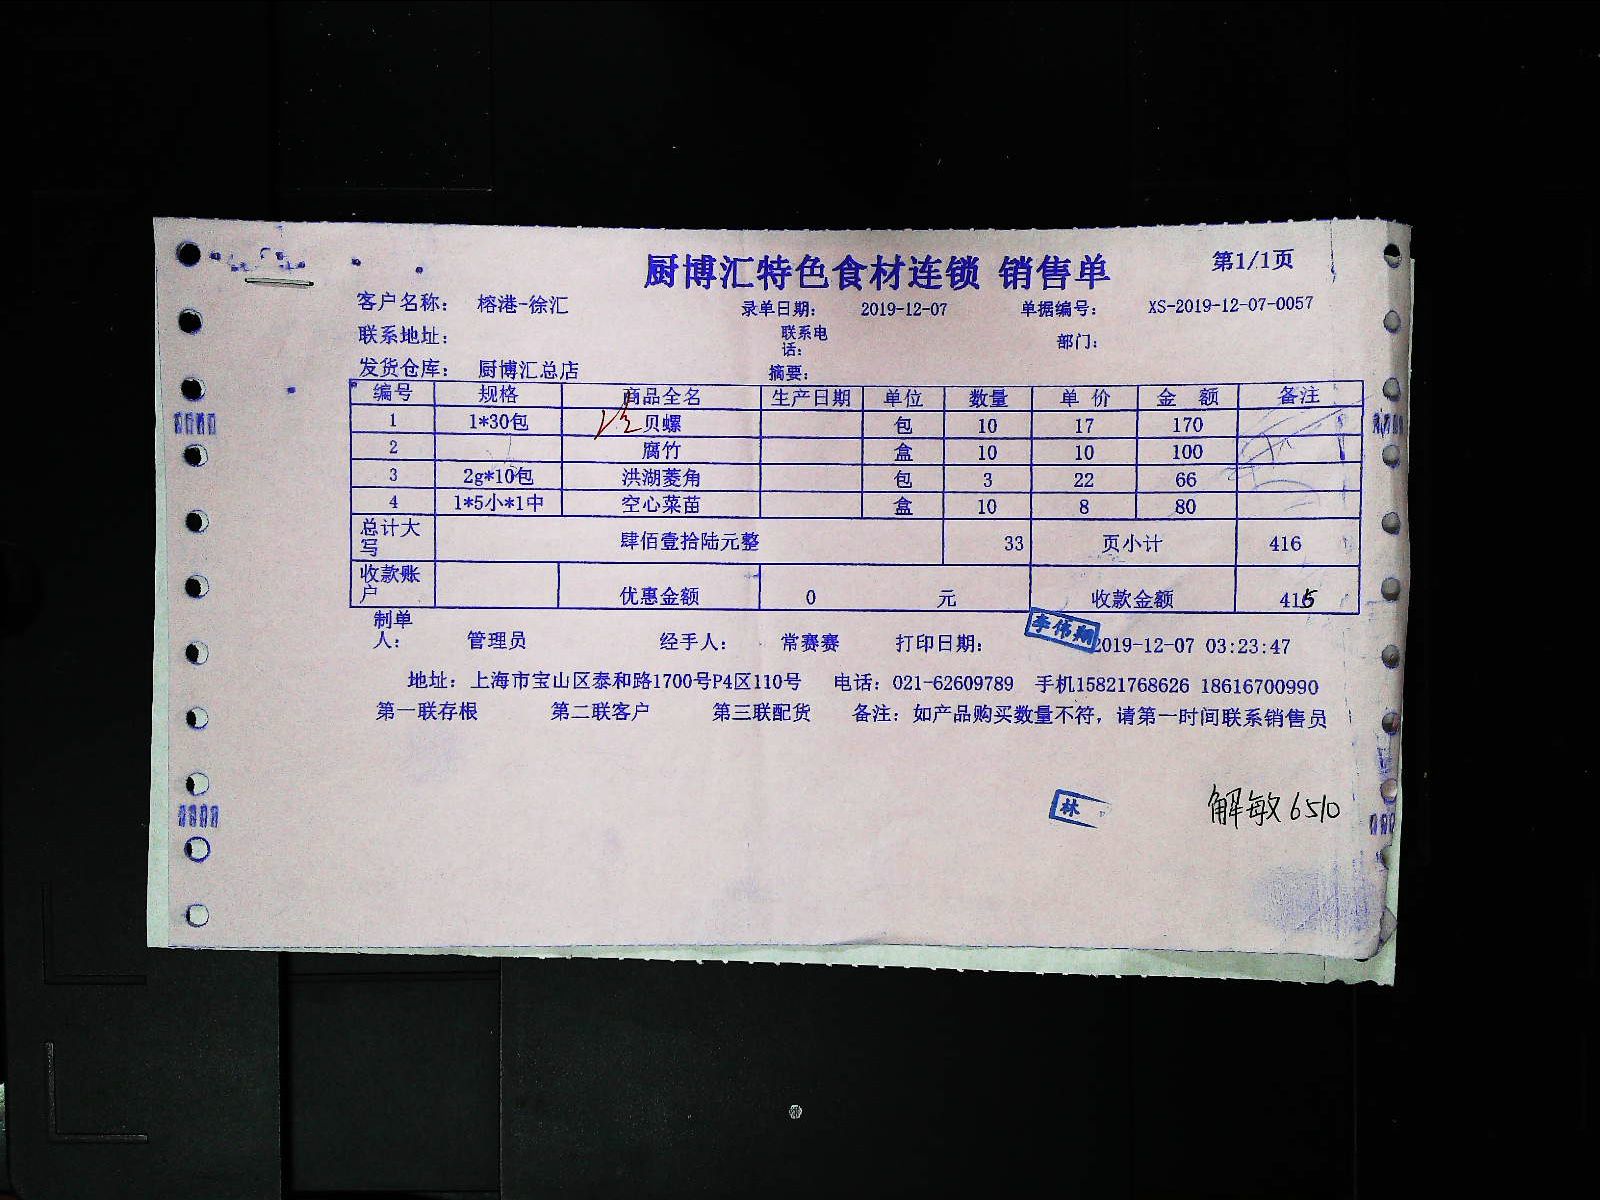 厨博汇特色食材连锁 销售单 第1/1页
客户名称： 榕港-徐汇 录单日期： 2019-12-07 单据编号： XS-2019-12-07-0057
联系地址： 联系电话： 部门：
发货仓库： 厨博汇总店 摘要：
编号 规格 商品全名 生产日期 单位 数量 单价 金额 备注
1 1*30包 贝螺 包 10 17 170
2 腐竹 盒 10 10 100
3 2g*10包 洪湖菱角 包 3 22 66
4 1*5小*1中 空心菜苗 盒 10 8 80
总计大写 肆佰壹拾陆元整 33 页小计 416
收款账户 优惠金额 0 元 收款金额 415
制单人： 管理员 经手人： 常赛赛 打印日期： 2019-12-07 03:23:47
李伟翔
地址：上海市宝山区泰和路1700号P4区110号 电话：021-62609789 手机15821768626 18616700990
第一联存根 第二联客户 第三联配货 备注：如产品购买数量不符，请第一时间联系销售员
林
解敏6510